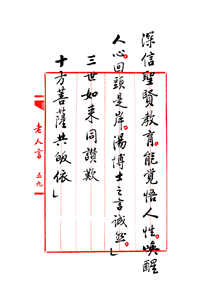 深信聖賢教育能覺悟人性喚醒
人心回頭是岸湯博士之言誠然」
三世如来同讃歎
十方菩薩共皈依」
老人言 五九